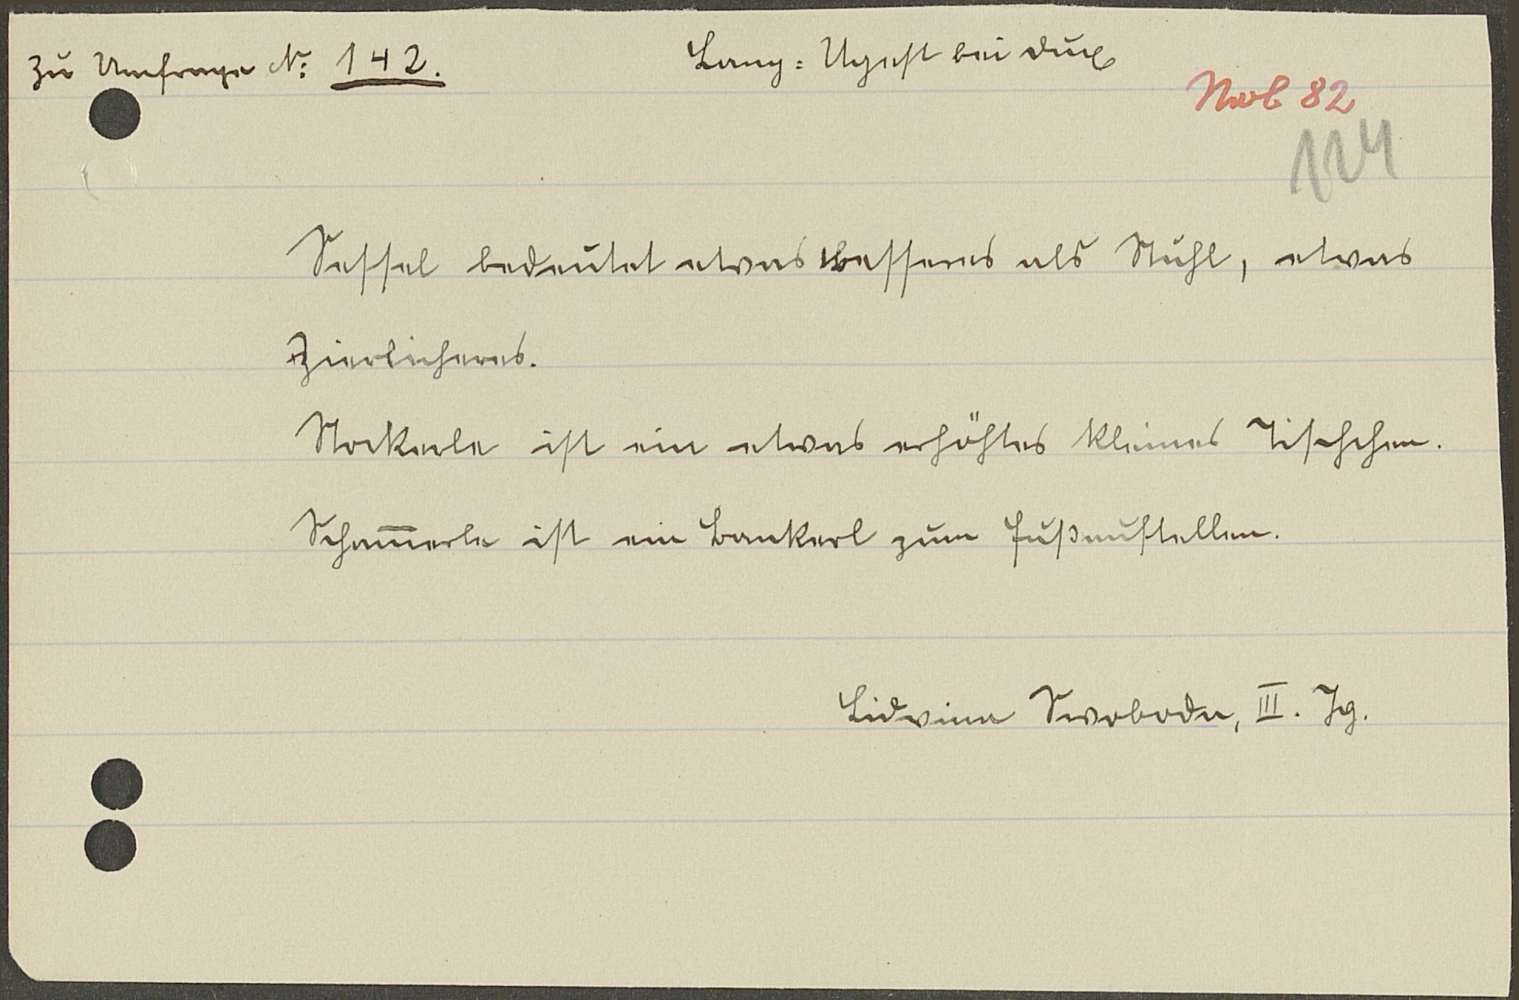 Zu Umfrage N: 142.
Lang-Ugest bei Dux
Nwb 82
114
Sessel bedeutet etwas besseres als Stuhl, etwas
Zierlicheres.
Stockerle ist ein etwas erhöhtes kleines Tischchen.
Scham̅erle ist ein Bankerl zum Fußaufstellen.
Lidvina Swoboda, III. Jg.